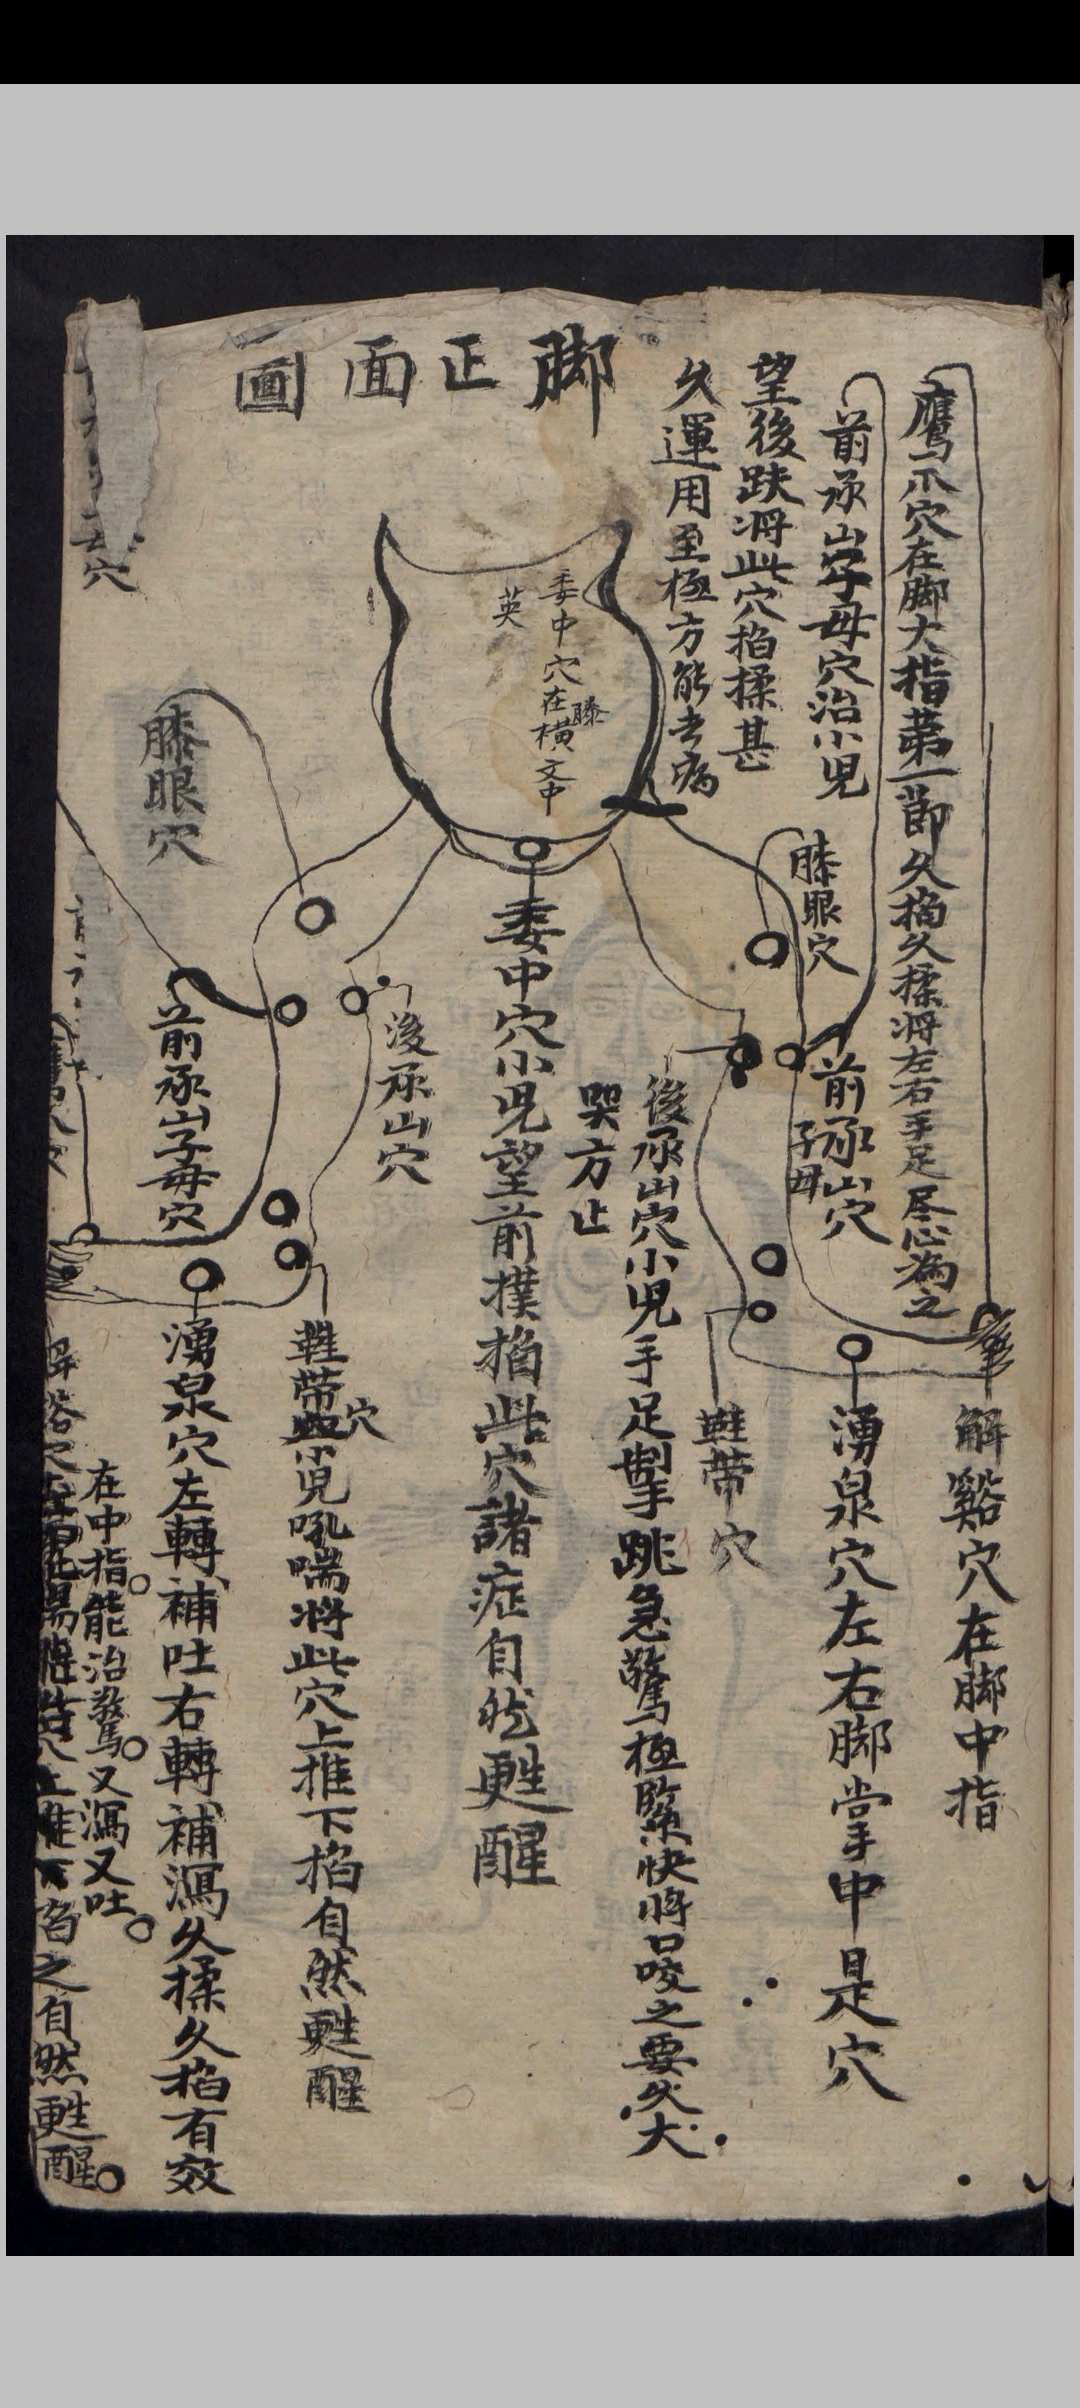 脚正面圖
鷹爪穴在脚大指第一節久掐久揉将左右手足尽心為之
前承山字母穴治小児
望後跌将此穴掐揉甚
久運用至極方能去病
委中穴在膝橫文中
英
膝眼穴
前承山穴
子母
解谿穴在脚中指
湧泉穴左右脚掌中是穴
鞋带穴
後承山穴小児手足掣跳急驚極緊快将口咬之要久大
哭方止
委中穴小児望前撲掐此穴諸症自然甦醒
後承山穴
鞋带穴小児吼喘将此穴上推下掐自然甦醒
膝眼穴
前承山子母穴
湧泉穴左轉補吐右轉補瀉久揉久掐有效
在中指能治驚又瀉又吐
之自然甦醒
穴